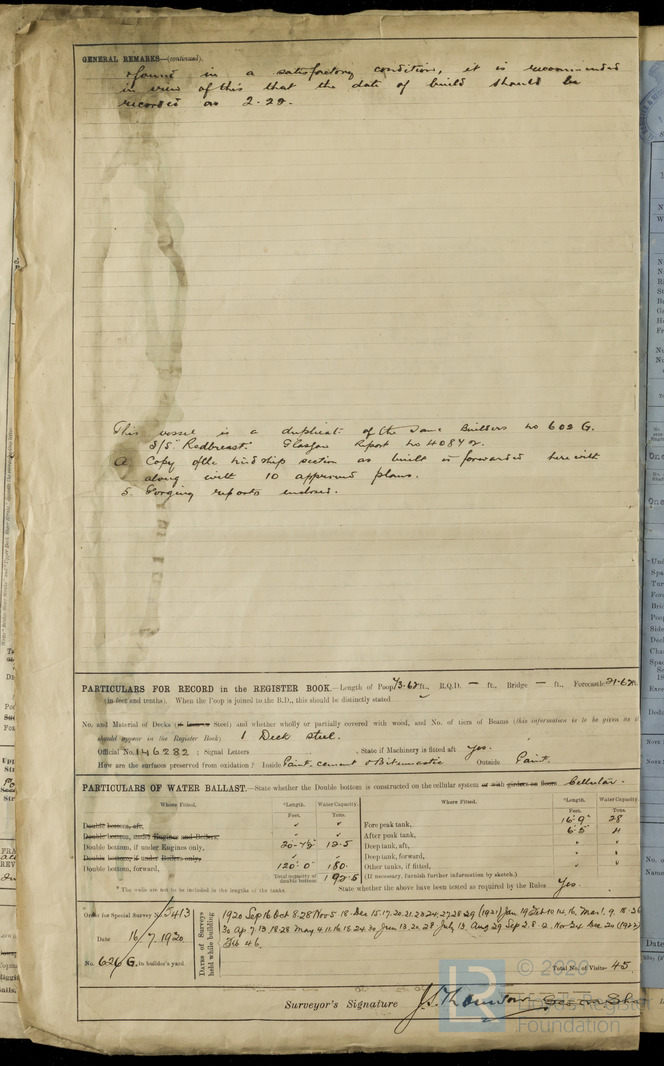 GENERAL REMARKS—(continued).
& found in a satisfactory condition, it is recommended
in view of this that the date of build should be
recorded as 2-22.
This vessel is a duplicate of the same Builders No 602 G.
S/S "Redbreast" Glasgow Report No 40842.
A Copy of the midship section as built is forwarded herewith
along with 10 approved plans.
5 Forging reports enclosed.
PARTICULARS FOR RECORD in the REGISTER BOOK.—Length of Poop 43.67 ft., R.Q.D. — ft., Bridge — ft., Forecastle 21.67 ft.
(in feet and tenths). When the Poop is joined to the B.D., this should be distinctly stated
No. and Material of Decks Steel) and whether wholly or partially covered with wood, and No. of tiers of Beams (this information to be given as it
should appear in the Register Book) 1 Deck steel.
Official No. 146282 ; Signal Letters , State if Machinery is fitted aft yes.
How are the surfaces preserved from oxidation? Inside Paint, cement & Bitumastic Outside Paint.
PARTICULARS OF WATER BALLAST.—State whether the Double bottom is constructed on the cellular system or with girders on floors Cellular.
Where Fitted. *Length. Water Capacity. Where Fitted. *Length. Water Capacity.
Feet. Tons. Feet. Tons.
Double bottom, aft, Fore peak tank, 16'9" 28
Double bottom, under Engines and Boilers, After peak tank, 6'5" 11
Double bottom, if under Engines only, 12.5 Deep tank, aft,
Double bottom, if under Boilers only, Deep tank, forward,
Double bottom, forward, 120'0" 180 Other tanks, if fitted,
Total capacity of double bottom 192.5 (If necessary, furnish further information by sketch.)
* The wells are not to be included in the lengths of the tanks. State whether the above have been tested as required by the Rules Yes.
Order for Special Survey No. 5413
Date 16/7.1920
No. 626 G. in builder's yard.
DATES of Surveys held while building
1920 Sep 16 Oct 8.28 Nov 5.18 Dec 15.17.20.21.23.24.27.28.29 (1921) Jan 19 Feb 10.14.16. Mar 1.9.18.26
30 Ap. 7.13.18.28 May 4.11.16.18.24.30 Jun 13.20.28 July 13 Aug 29 Sep 2.8. Nov Dec 20 (1922)
Feb 4 6.
Total No. of Visits 45.
Surveyor's Signature
© 2020
Lloyd's Register
Foundation